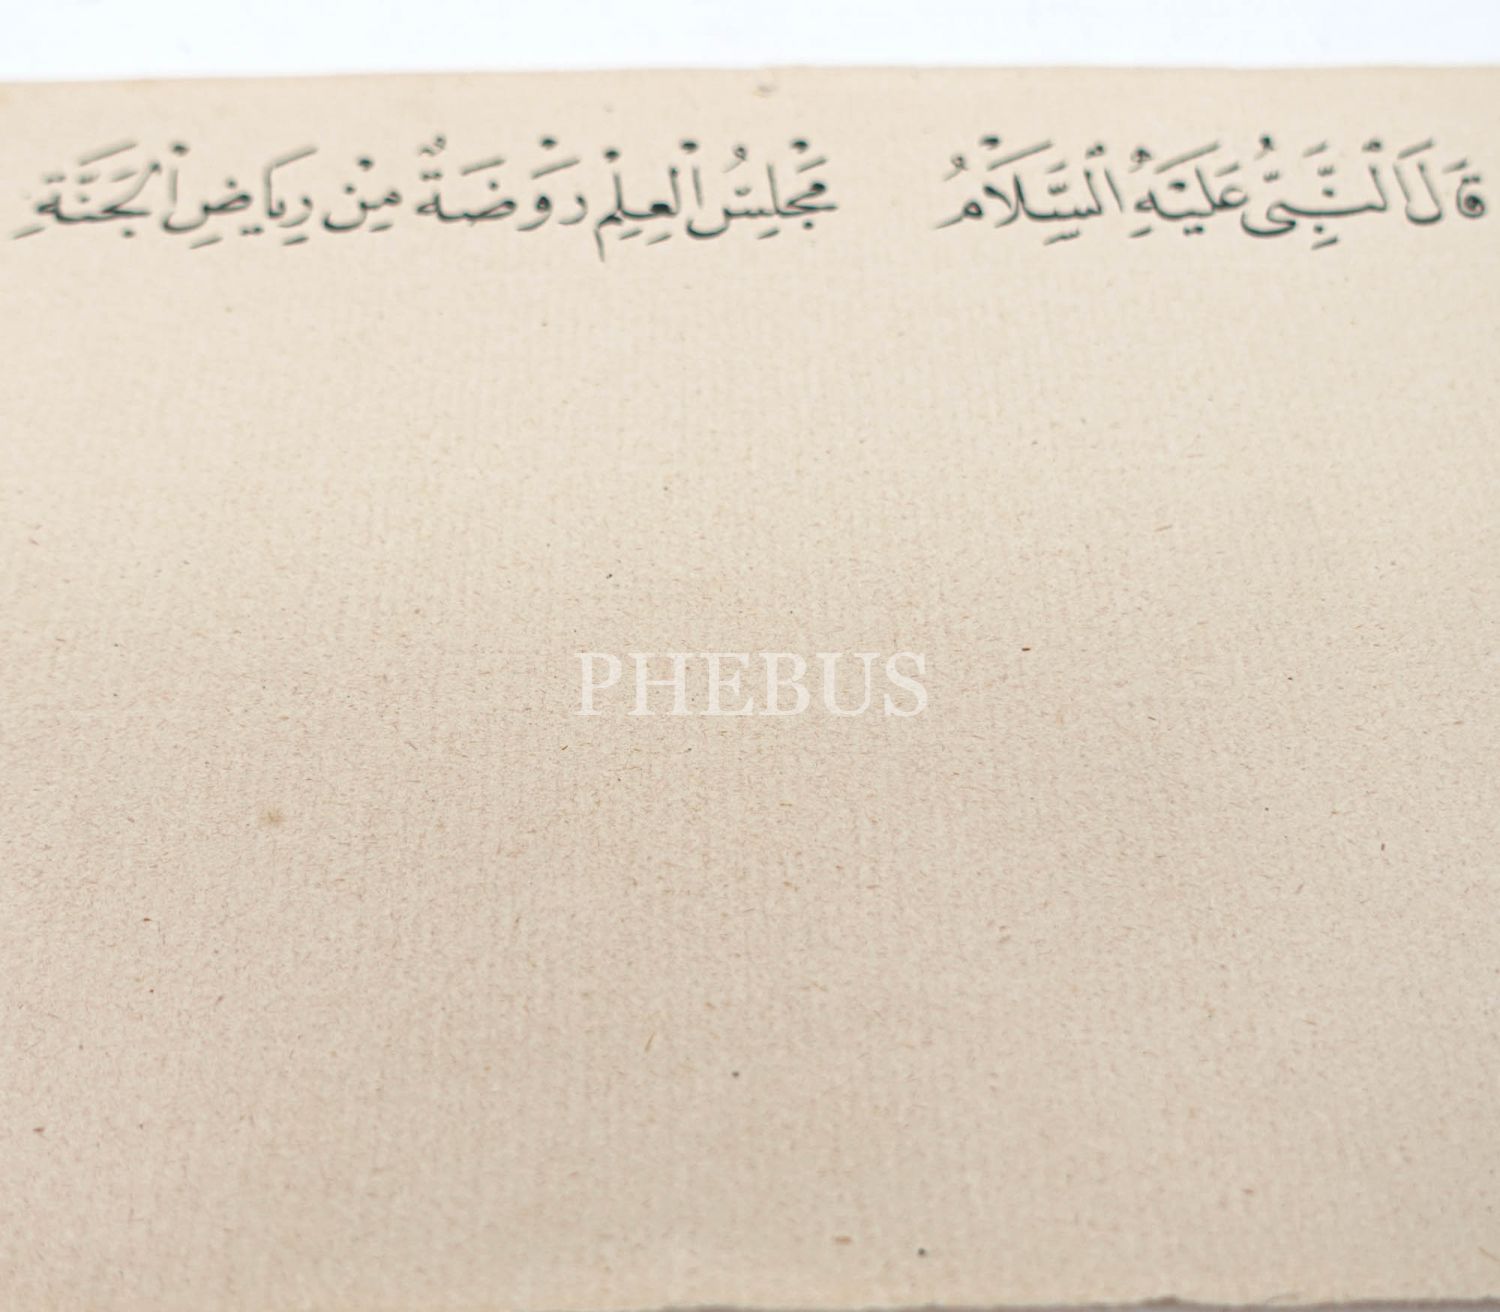 قَالَ النَّبِىُّ عَلَيْهِ السَّلَامُ مَجْلِسُ الْعِلْمِ رَوْضَةٌ مِنْ رِيَاضِ الْجَنَّةِ
PHEBUS